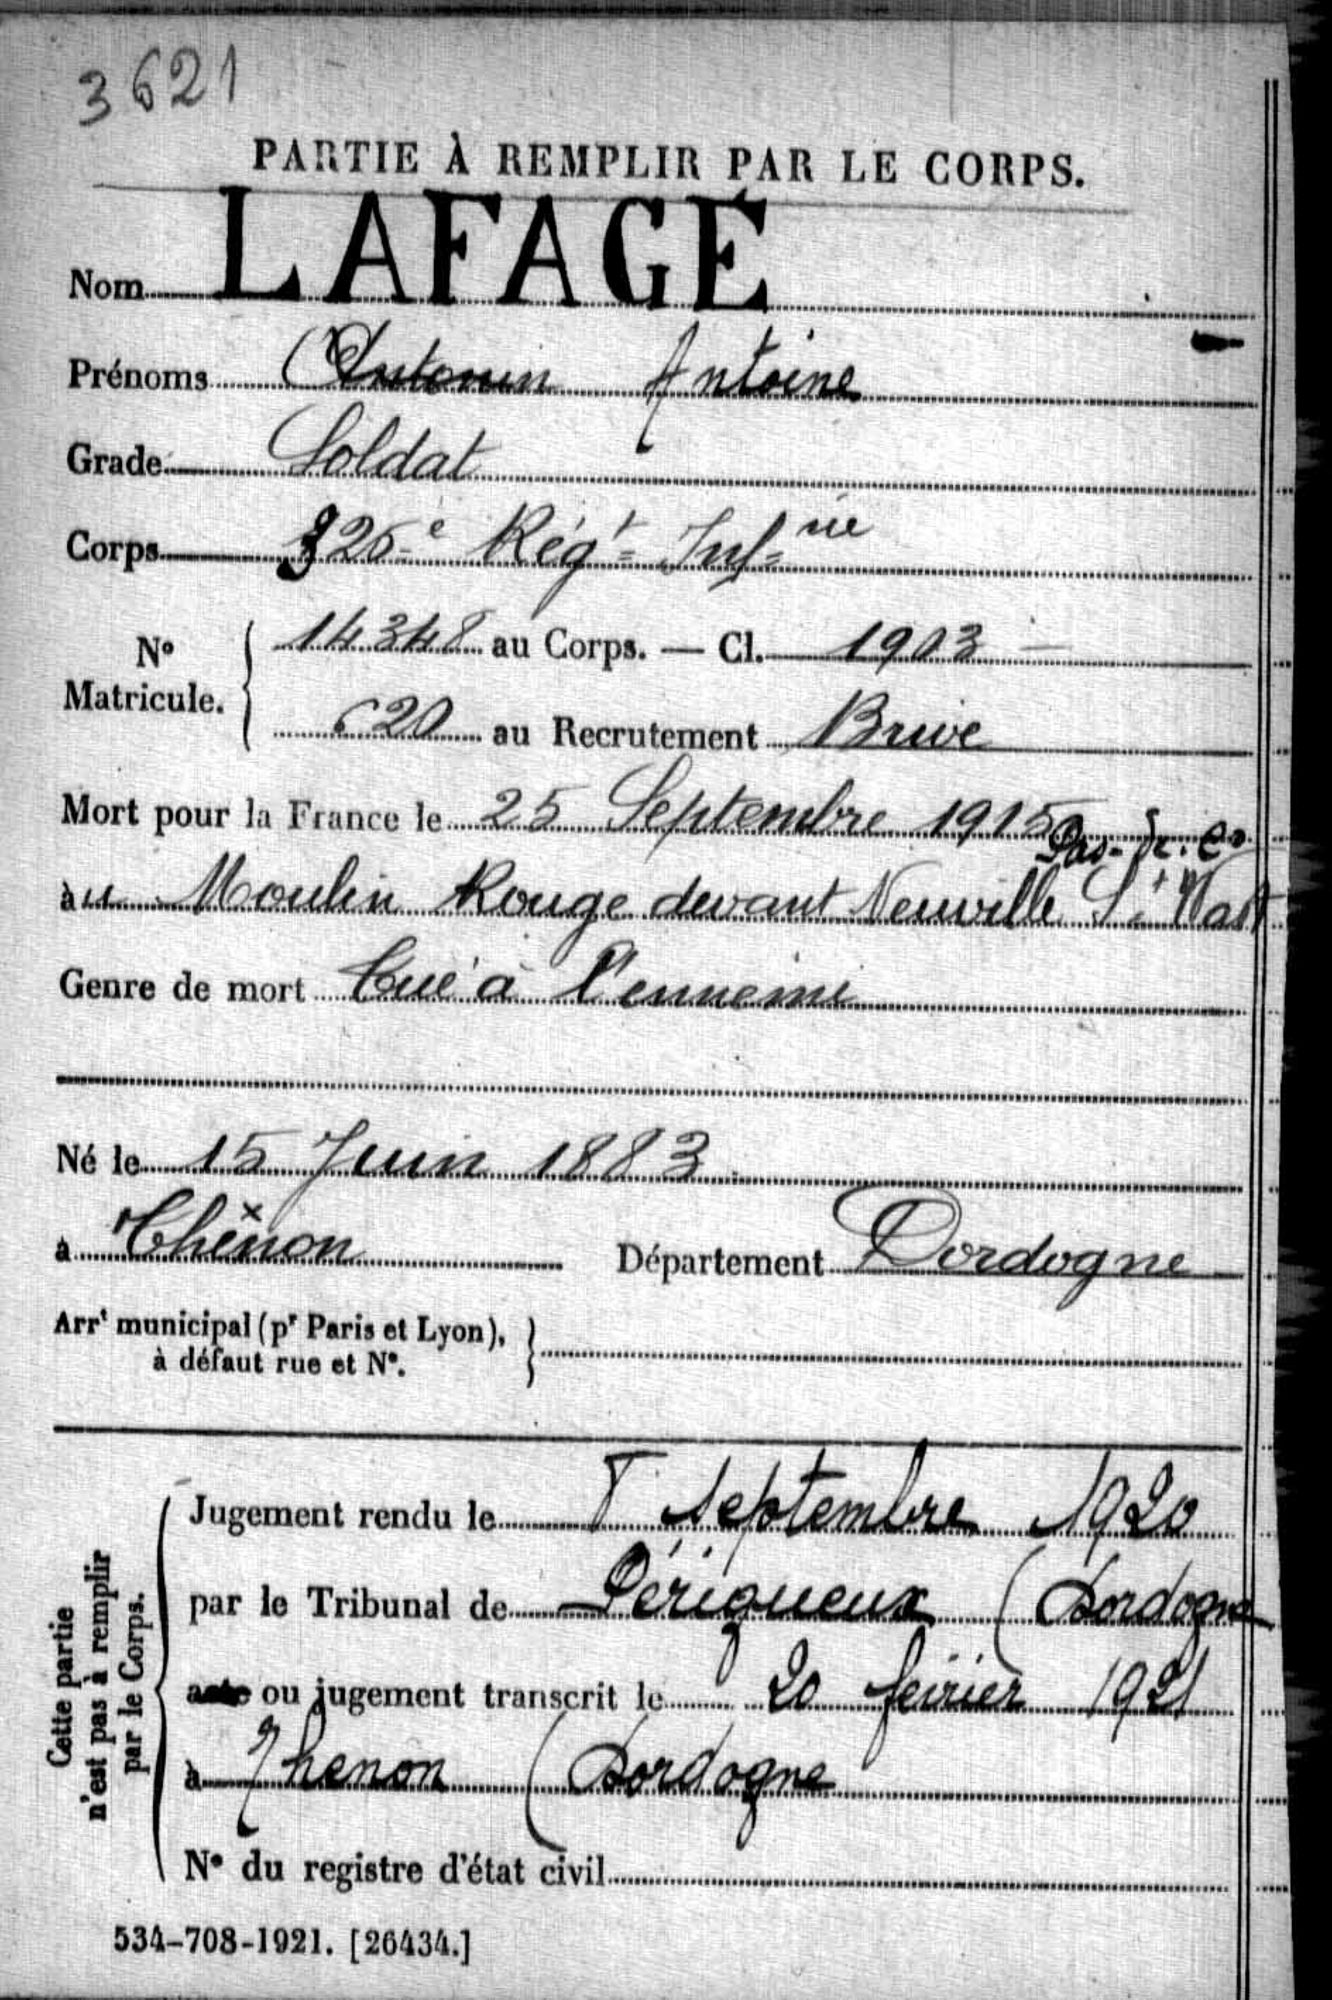 3621
PARTIE À REMPLIR PAR LE CORPS.
Nom LAFAGE
Prénoms Antonin Antoine
Grade Soldat
Corps 326e Régt Infrie
No Matricule. 14348 au Corps. — Cl. 1903
620 au Recrutement Brive
Mort pour la France le 25 Septembre 1915
Pas-de-C.
au Moulin Rouge devant Neuville St Vast
Genre de mort Tué à l'ennemi
Né le 15 Juin 1883
à Thênon Département Dordogne
Arrt municipal (pr Paris et Lyon),
à défaut rue et No.
Cette partie
n'est pas à remplir
par le Corps.
Jugement rendu le Septembre 1920
par le Tribunal de Périgueux (Dordogne
acte ou jugement transcrit le 20 février 1921
à Thenon (Dordogne
No du registre d'état civil
534-708-1921. [26434.]